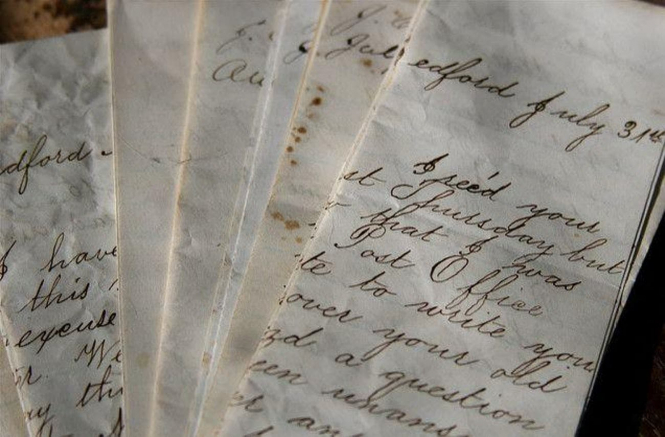 dford
I have
this
excuse
We
ay th
Au
J.
Jul
edford July 31st
I rec'd your
st Thursday but
that I was
Post Office
te to write you
over your old
d a question
een unans
er an